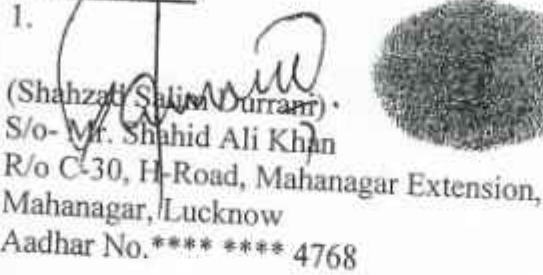 1.
(Shahzad Salim Durrani)
S/o- Mr. Shahid Ali Khan
R/o C-30, H-Road, Mahanagar Extension,
Mahanagar, Lucknow
Aadhar No.**** **** 4768